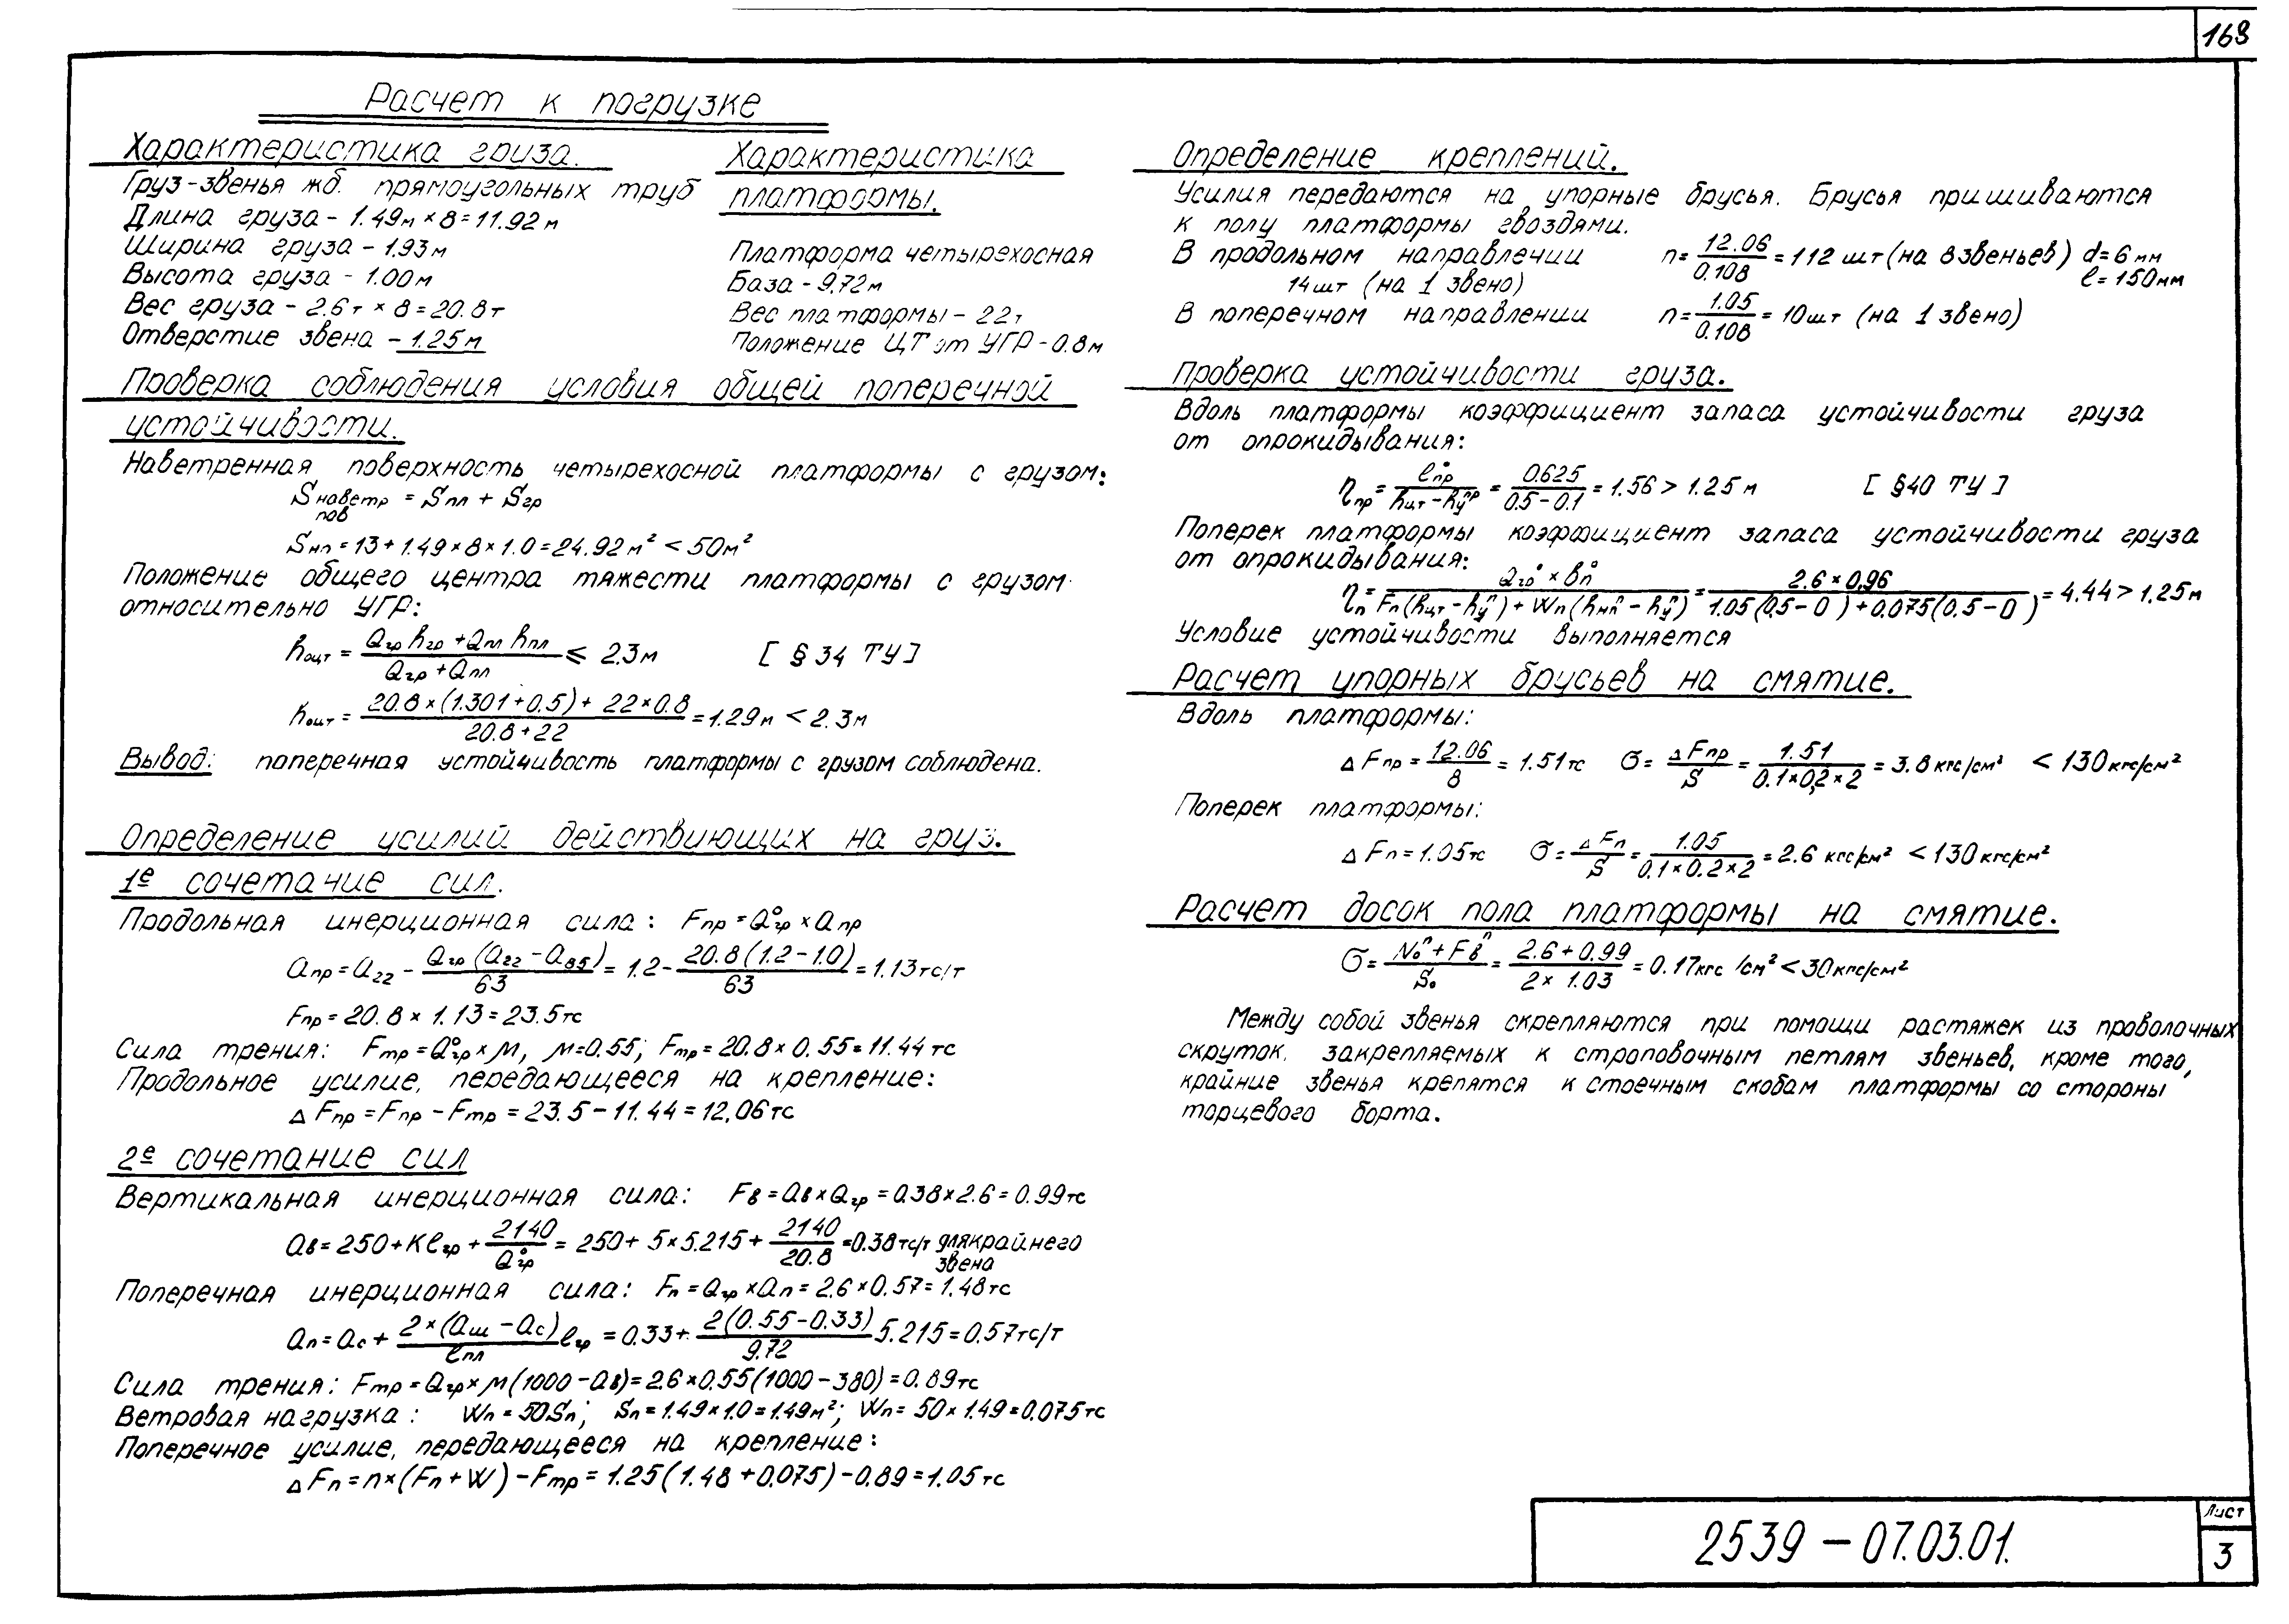 168
Расчет к погрузке
Характеристика груза.
Груз-звенья жб. прямоугольных труб
Длина груза - 1.49м × 8 = 11.92 м
Ширина груза - 1.93 м
Высота груза - 1.00 м
Вес груза - 2.6т × 8 = 20.8т
Отверстие звена - 1.25 м
Характеристика
платформы.
Платформа четырехосная
База - 9.72 м
Вес платформы - 22т
Положение ЦТ от УГР - 0.8 м
Проверка соблюдения условия общей поперечной
устойчивости.
Наветренная поверхность четырехосной платформы с грузом:
Sнаветр пов = Sпл + Sгр
Sнп = 13 + 1.49 × 8 × 1.0 = 24.92 м² < 50 м²
Положение общего центра тяжести платформы с грузом
относительно УГР:
hоцт = (Qгр hгр + Qпл hпл) / (Qгр + Qпл) ≤ 2.3 м [ § 34 ТУ ]
hоцт = (20.8 × (1.301 + 0.5) + 22 × 0.8) / (20.8 + 22) = 1.29 м < 2.3 м
Вывод: поперечная устойчивость платформы с грузом соблюдена.
Определение усилий действующих на груз.
1е сочетание сил.
Продольная инерционная сила: Fпр = Q°гр × aпр
aпр = a22 - Qгр (a22 - a85) / 63 = 1.2 - 20.8 (1.2 - 1.0) / 63 = 1.13 тс/т
Fпр = 20.8 × 1.13 = 23.5 тс
Сила трения: Fтр = Q°гр × М, М = 0.55; Fтр = 20.8 × 0.55 = 11.44 тс
Продольное усилие, передающееся на крепление:
Δ Fпр = Fпр - Fтр = 23.5 - 11.44 = 12.06 тс
2е сочетание сил
Вертикальная инерционная сила: Fв = aв × Qгр = 0.38 × 2.6 = 0.99 тс
aв = 250 + Kℓгр + 2140 / Q°гр = 250 + 5 × 5.215 + 2140 / 20.8 = 0.38 тс/т для крайнего
звена
Поперечная инерционная сила: Fп = Qгр × aп = 2.6 × 0.57 = 1.48 тс
aп = aс + 2 × (aш - aс) / ℓпл ℓгр = 0.33 + 2 (0.55 - 0.33) / 9.72 5.215 = 0.57 тс/т
Сила трения: Fтр = Qгр × М (1000 - aв) = 2.6 × 0.55 (1000 - 380) = 0.89 тс
Ветровая нагрузка: Wп = 50Sп; Sп = 1.49 × 1.0 = 1.49 м²; Wп = 50 × 1.49 = 0.075 тс
Поперечное усилие, передающееся на крепление:
Δ Fп = n × (Fп + W) - Fтр = 1.25 (1.48 + 0.075) - 0.89 = 1.05 тс
Определение креплений.
Усилия передаются на упорные брусья. Брусья пришиваются
к полу платформы гвоздями.
В продольном направлении n = 12.06 / 0.108 = 112 шт (на 8 звеньев) d = 6 мм
14 шт (на 1 звено) ℓ = 150 мм
В поперечном направлении n = 1.05 / 0.108 = 10 шт (на 1 звено)
Проверка устойчивости груза.
Вдоль платформы коэффициент запаса устойчивости груза
от опрокидывания:
ηпр = ℓ°пр / (hцт - hуᵖᵖ) = 0.625 / (0.5 - 0.1) = 1.56 > 1.25 м [ § 40 ТУ ]
Поперек платформы коэффициент запаса устойчивости груза
от опрокидывания:
ηп = Qгр° × bп° / (Fп (hцт - hуⁿ) + Wп (hнпⁿ - hуⁿ)) = 2.6 × 0.96 / (1.05 (0.5 - 0) + 0.075 (0.5 - 0)) = 4.44 > 1.25 м
Условие устойчивости выполняется
Расчет упорных брусьев на смятие.
Вдоль платформы:
Δ Fпр = 12.06 / 8 = 1.51 тс σ = Δ Fпр / S = 1.51 / (0.1 × 0.2 × 2) = 3.8 кгс/см² < 130 кгс/см²
Поперек платформы:
Δ Fп = 1.05 тс σ = Δ Fп / S = 1.05 / (0.1 × 0.2 × 2) = 2.6 кгс/см² < 130 кгс/см²
Расчет досок пола платформы на смятие.
σ = (N°ⁿ + Fвⁿ) / S° = (2.6 + 0.99) / (2 × 1.03) = 0.17 кгс /см² < 30 кгс/см²
Между собой звенья скрепляются при помощи растяжек из проволочных
скруток, закрепляемых к строповочным петлям звеньев, кроме того,
крайние звенья крепятся к стоечным скобам платформы со стороны
торцевого борта.
2539 - 07.03.01.
Лист
3